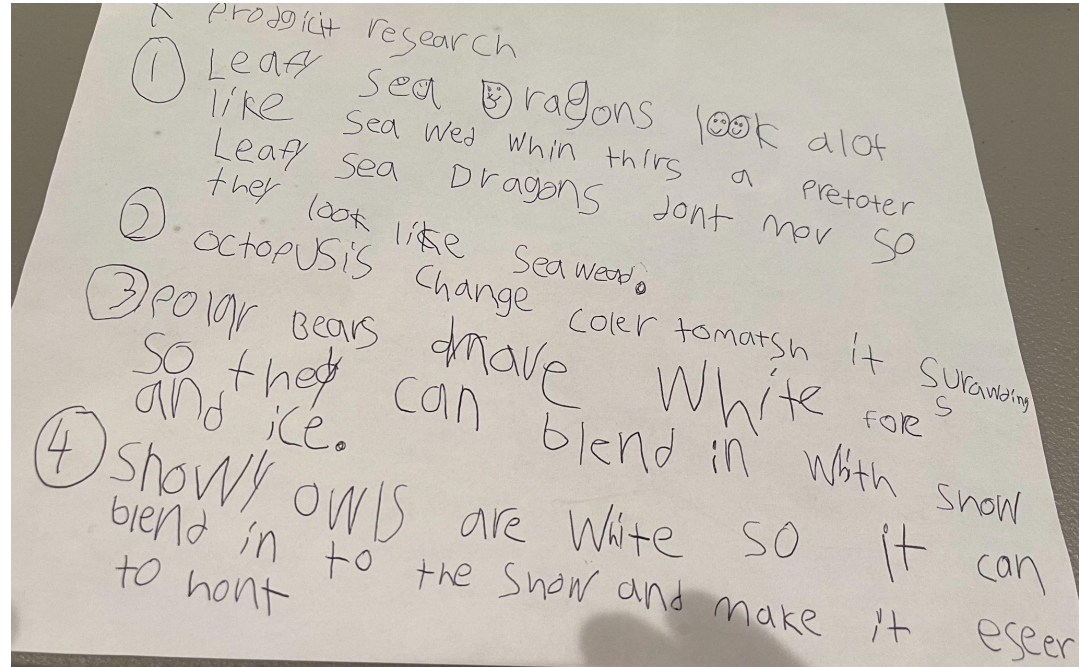 prodgict research
① Leafy sea Dragons look alot
like sea wed whin thirs a pretoter
Leafy sea Dragons dont mov so
they look like seawead.
② octopusis change coler tomatsh it surawding
s
③ polar Bears have white fore
so they can blend in whith snow
and ice.
④ Snowy owls are white so it can
blend in to the snow and make it eseer
to hont